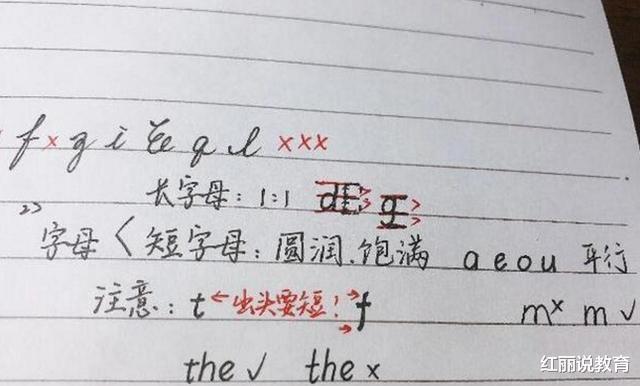 f × g i q l ×××
长字母：1:1 d g
2> 字母 < 短字母：圆润、饱满 a e o u 平行
注意：t ←出头要短！→ f m × m √
the √ the ×
红丽说教育